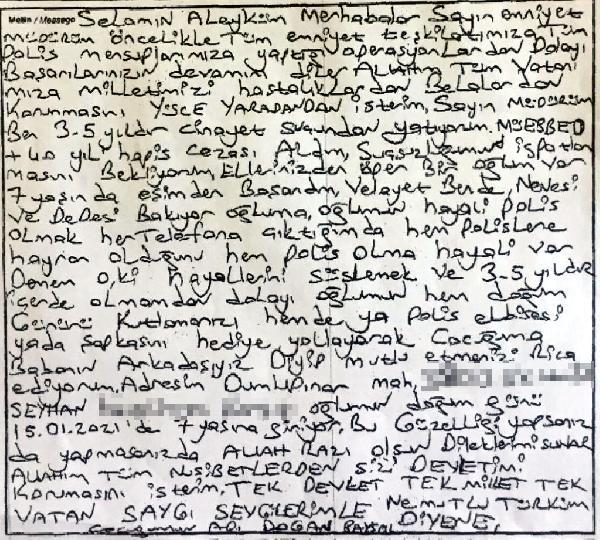 Metin / Message Selamın Aleyküm Merhabalar Sayın emniyet
müdürüm öncelikle Tüm emniyet teşkilatımıza Tüm
Polis mensuplarımıza yaptığı operasyonlardan Dolayı
Başarılarınızın devamını diler Allahım Tüm Vatanı
mıza milletimizi hastalıklardan Belalardan
Korunmasını YÜCE YARADANDAN isterim, Sayın MÜDÜRÜM
Ben 3-5 yıldır cinayet suçundan yatıyorum. MÜEBBED
+ 40 yıl hapis cezası Aldım, Suçsuzluğumun ispatlan
masını Bekliyorum, Ellerinizden öper Bir oğlum var
7 yaşında eşimden Boşandım, Velayet Bende, Nenesi
ve Dedesi Bakıyor oğluma, oğlumun hayali Polis
olmak her Telefona çıktığımda hem Polislere
hayran olduğunu hem polis olma hayali var
Benen o,ki hayallerini süslemek ve 3-5 yıldır
içerde olmamdan dolayı oğlumun hem doğum
Gününü Kutlamanızı hemde ya Polis elbisesi
yada şapkasını hediye yollayarak Çocuğuma
Babanın Arkadaşıyız Diyip mutlu etmenizi Rica
ediyorum, Adresim Dumlupınar mah,
SEYHAN oğlumun doğum günü
15.01.2021'de 7 yaşına giriyor, Bu Güzelliği yapsanız
da yapmasanızda ALLAH RAZI olsun Dileklerimi sunar
Allahım Tüm MUSİBETLERDEN SİZİ DEVLETİMİ
Korumasını isterim, TEK DEVLET TEK MİLLET TEK
VATAN SAYGI SEVGİLERİMLE Ne MUTLU TÜRKÜM
DİYENE,
Çocuğumun ADI DOĞAN BAYSAL